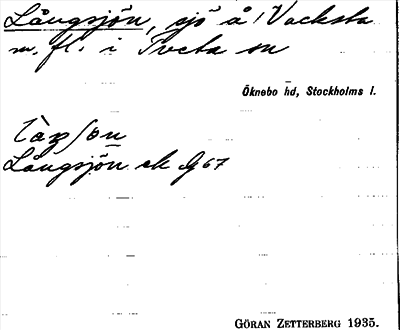 Långsjön, sjö å Vacksta
m. fl. i Tveta sn
Öknebo hd, Stockholms l.
Långsjön ek G 67
GÖRAN ZETTERBERG 1935.